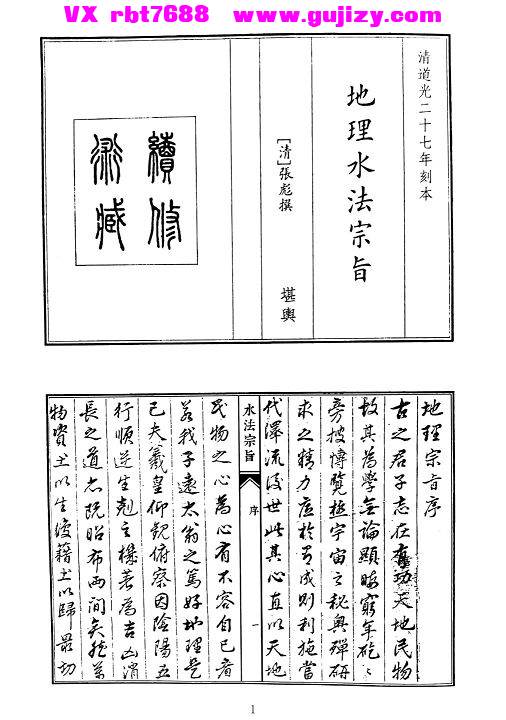 VX rbt7688 www.gujizy.com
清道光二十七年刻本
地理水法宗旨
[清]張彪撰
堪輿
續修
術藏
地理宗旨序
古之君子志在有功天地民物
故其為學無論顯晦窮年矻矻
旁搜博覽極宇宙之秘奧殫研
求之精力底於有成則利施當
代澤流後世此其心直以天地
水法宗旨
序
一
民物之心為心有不容自已者
若我子遠太翁之篤好地理是
已夫羲皇仰觀俯察因陰陽五
行順逆生剋之機著為吉凶消
長之道亦既昭布兩間矣然萬
物資土以生復藉土以歸最切
1